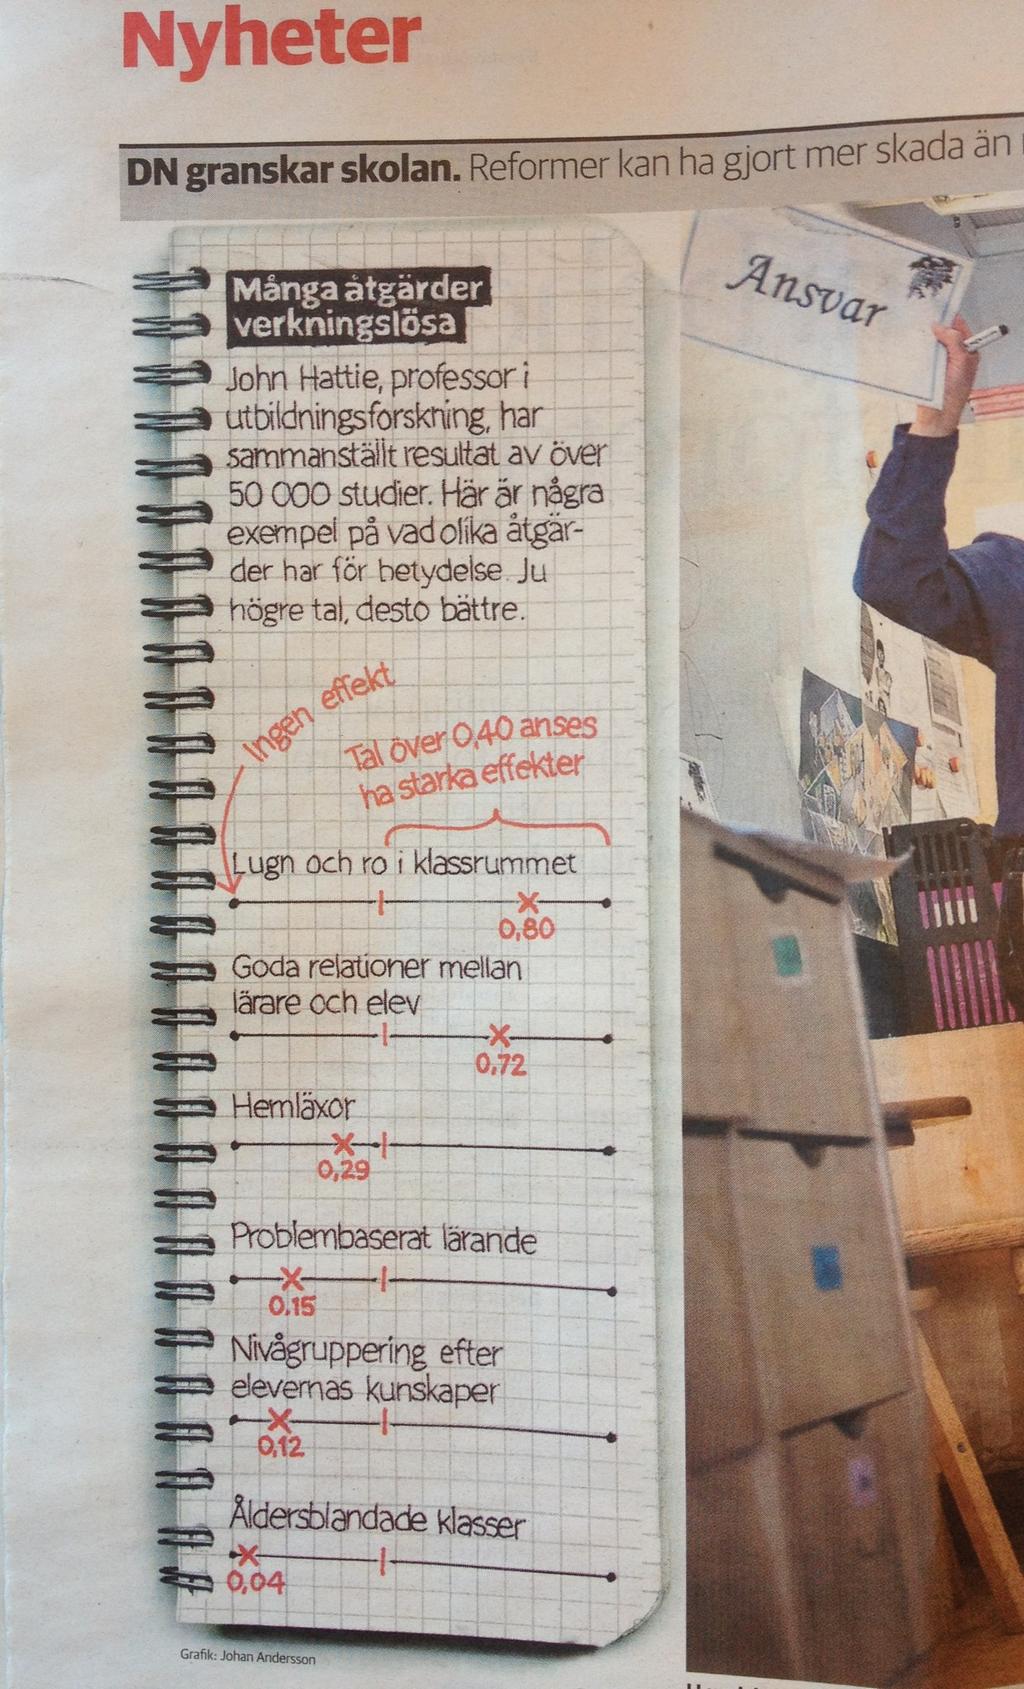 Nyheter
DN granskar skolan. Reformer kan ha gjort mer skada än
Många åtgärder
verkningslösa
John Hattie, professor i
utbildningsforskning, har
sammanställt resultat av över
50 000 studier. Här är några
exempel på vad olika åtgär-
der har för betydelse. Ju
högre tal, desto bättre.
Ingen effekt
Tal över 0,40 anses
ha starka effekter
Lugn och ro i klassrummet
0,80
Goda relationer mellan
lärare och elev
0,72
Hemläxor
0,29
Problembaserat lärande
0.15
Nivågruppering efter
elevernas kunskaper
0,12
Åldersblandade klasser
0,04
Grafik: Johan Andersson
Ansvar